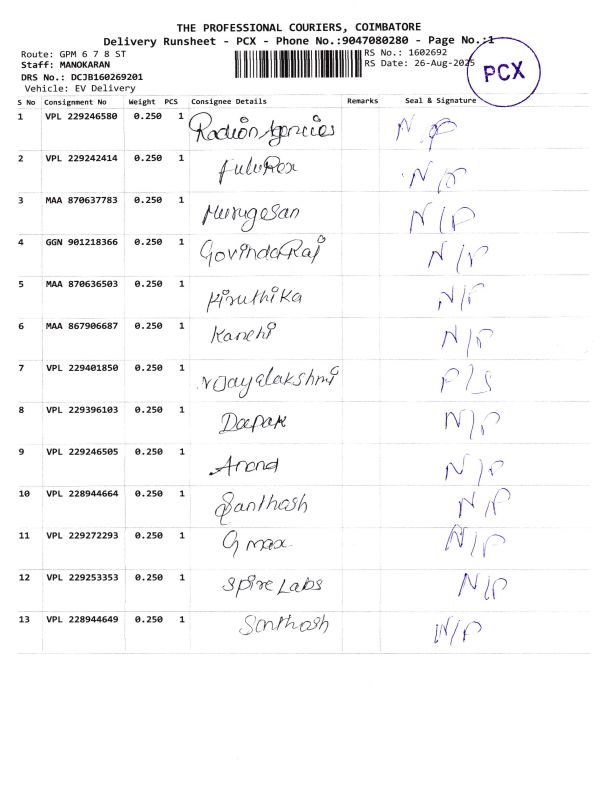 THE PROFESSIONAL COURIERS, COIMBATORE
Delivery Runsheet - PCX - Phone No.:9047080280 - Page No.:1
Route: GPM 6 7 8 ST
RS No.: 1602692
Staff: MANOKARAN
RS Date: 26-Aug-2025
PCX
DRS No.: DCJB160269201
Vehicle: EV Delivery
S No Consignment No Weight PCS Consignee Details Remarks Seal & Signature
1 VPL 229246580 0.250 1 Radion Agencies N P
2 VPL 229242414 0.250 1 N P
3 MAA 870637783 0.250 1 Murugesan N/P
4 GGN 901218366 0.250 1 GovindaRaj N/P
5 MAA 870636503 0.250 1 Kiruthika N/P
6 MAA 867906687 0.250 1 Kanchi N/P
7 VPL 229401850 0.250 1 Vijayalakshmi P/S
8 VPL 229396103 0.250 1 Deepak N/P
9 VPL 229246505 0.250 1 Anand N/P
10 VPL 228944664 0.250 1 Santhosh N/P
11 VPL 229272293 0.250 1 G max N/P
12 VPL 229253353 0.250 1 Spire Labs N/P
13 VPL 228944649 0.250 1 Santhosh N/P